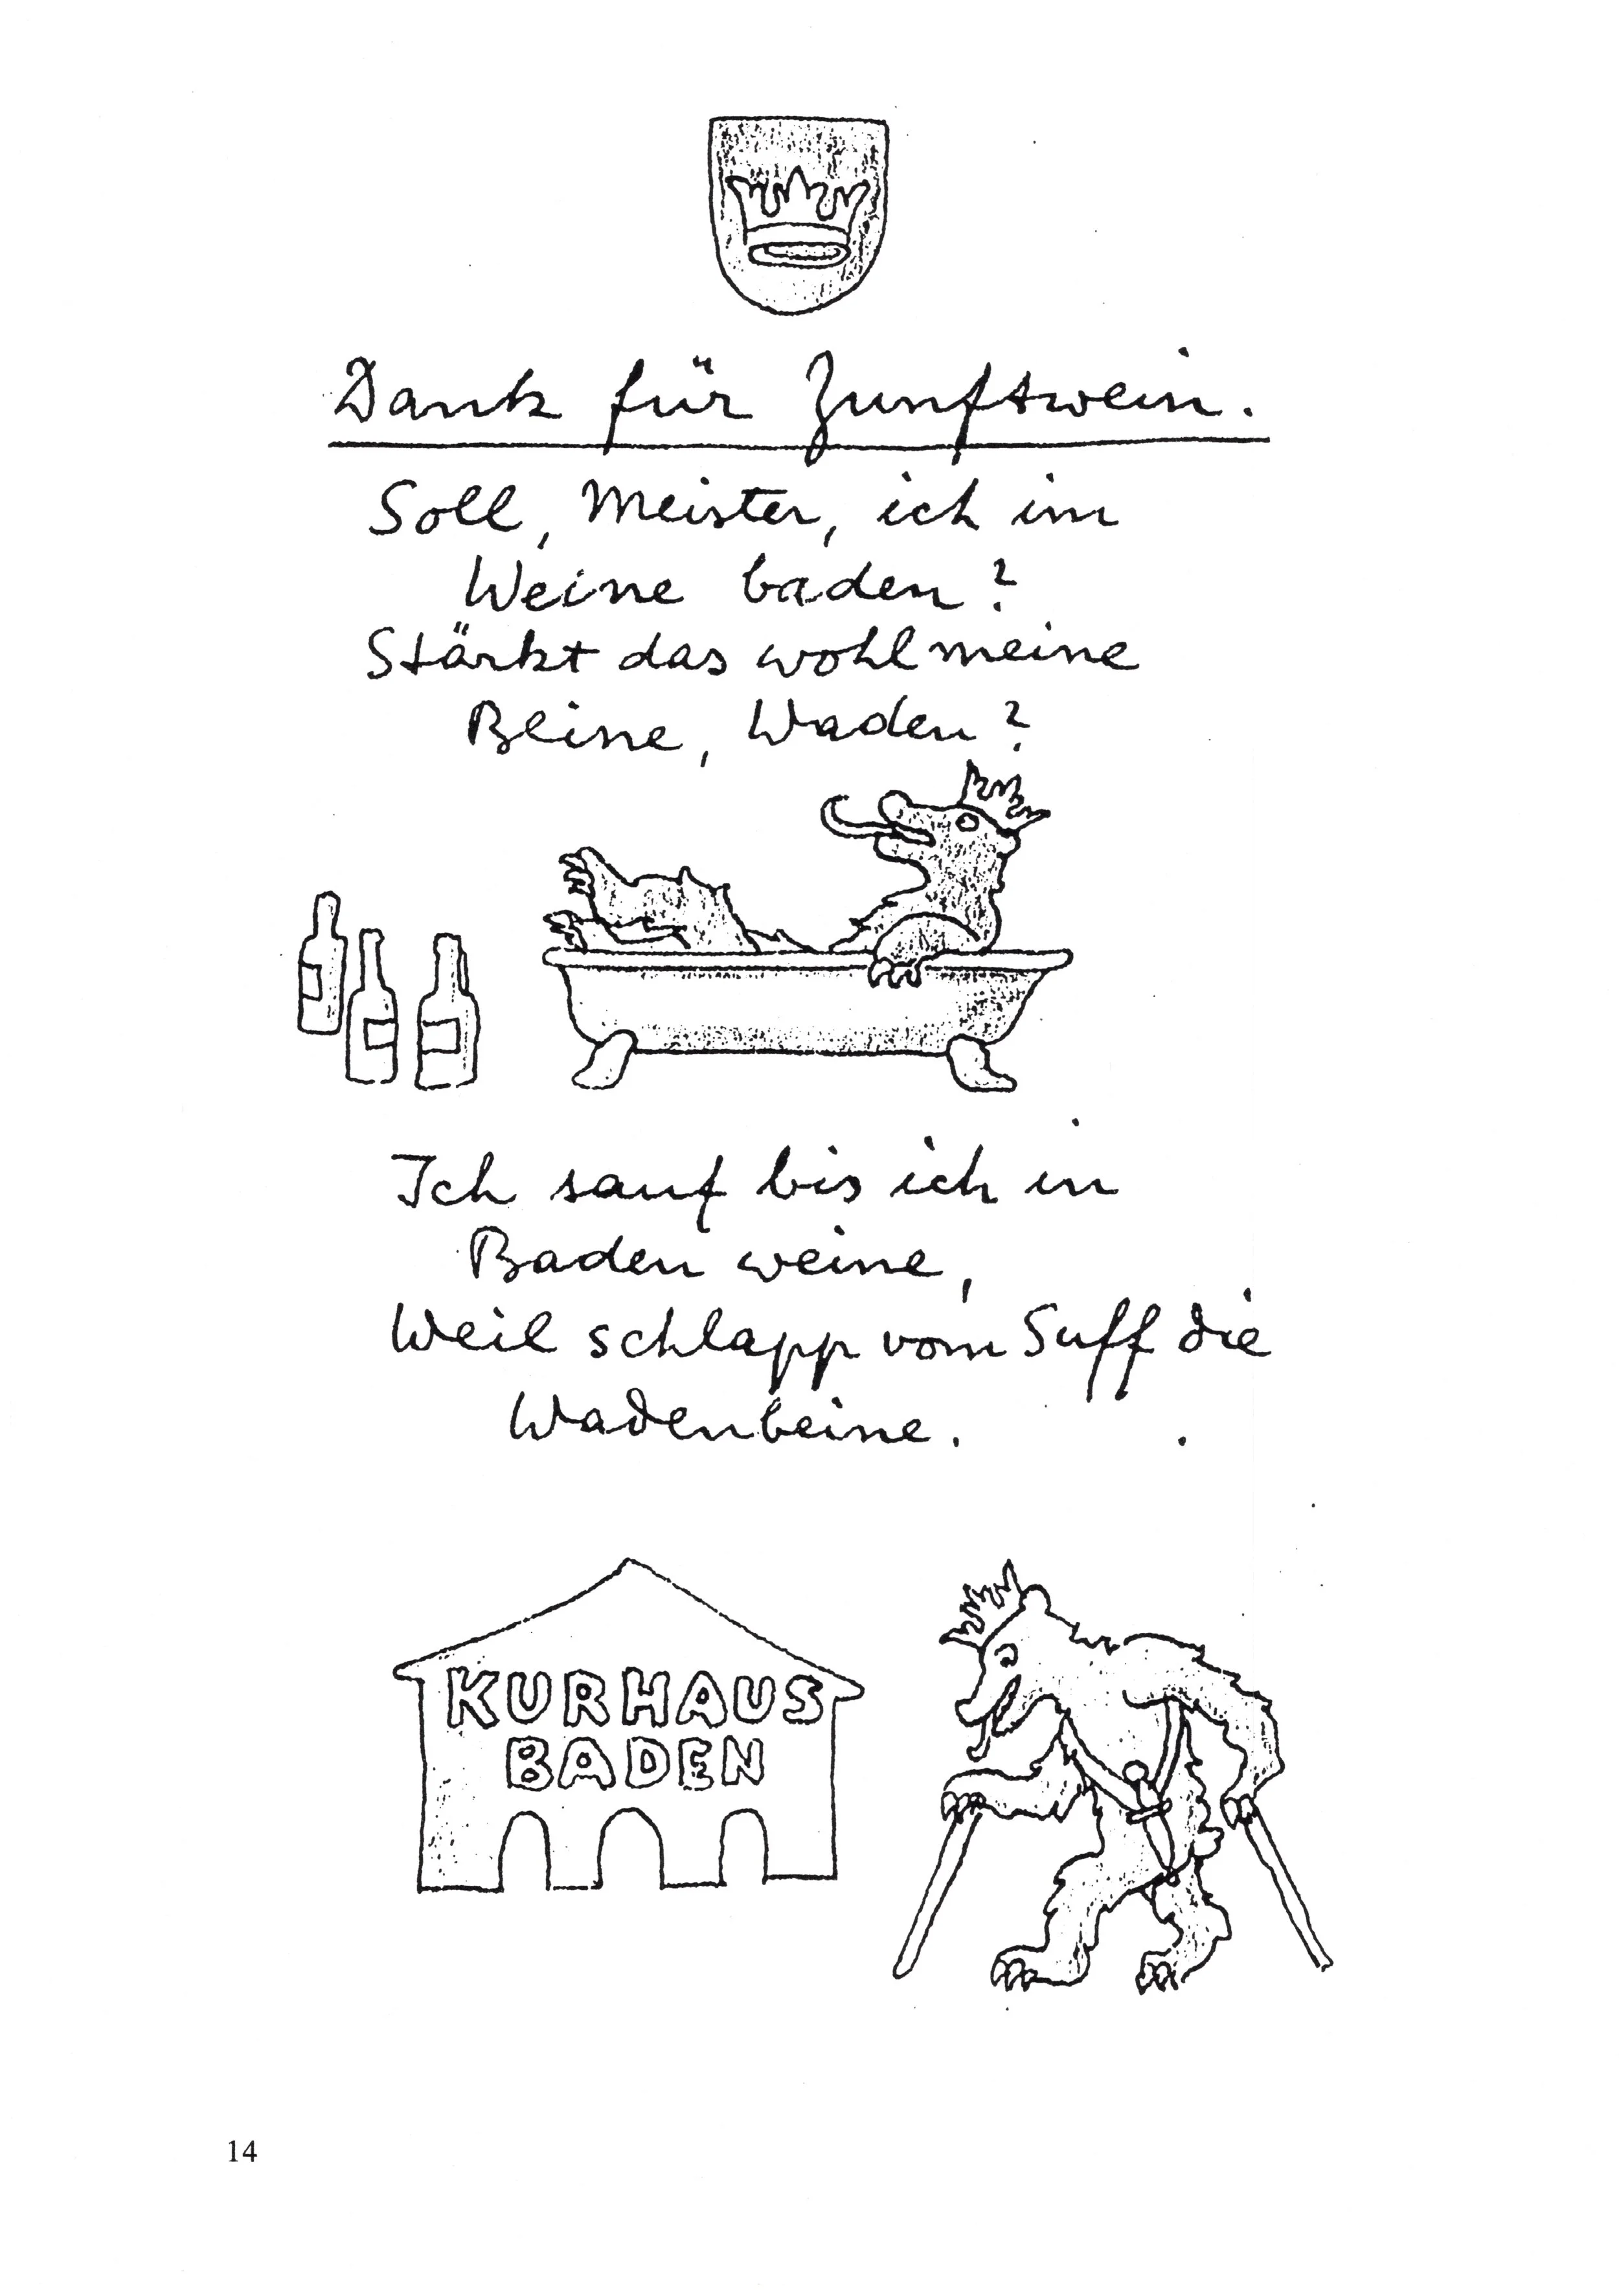 Dank für Zunftwein.
Soll, Meister, ich im
Weine baden?
Stärkt das wohl meine
Beine, Waden?
Ich sauf bis ich in
Baden weine,
Weil schlapp vom Suff die
Wadenbeine.
KURHAUS
BADEN
14